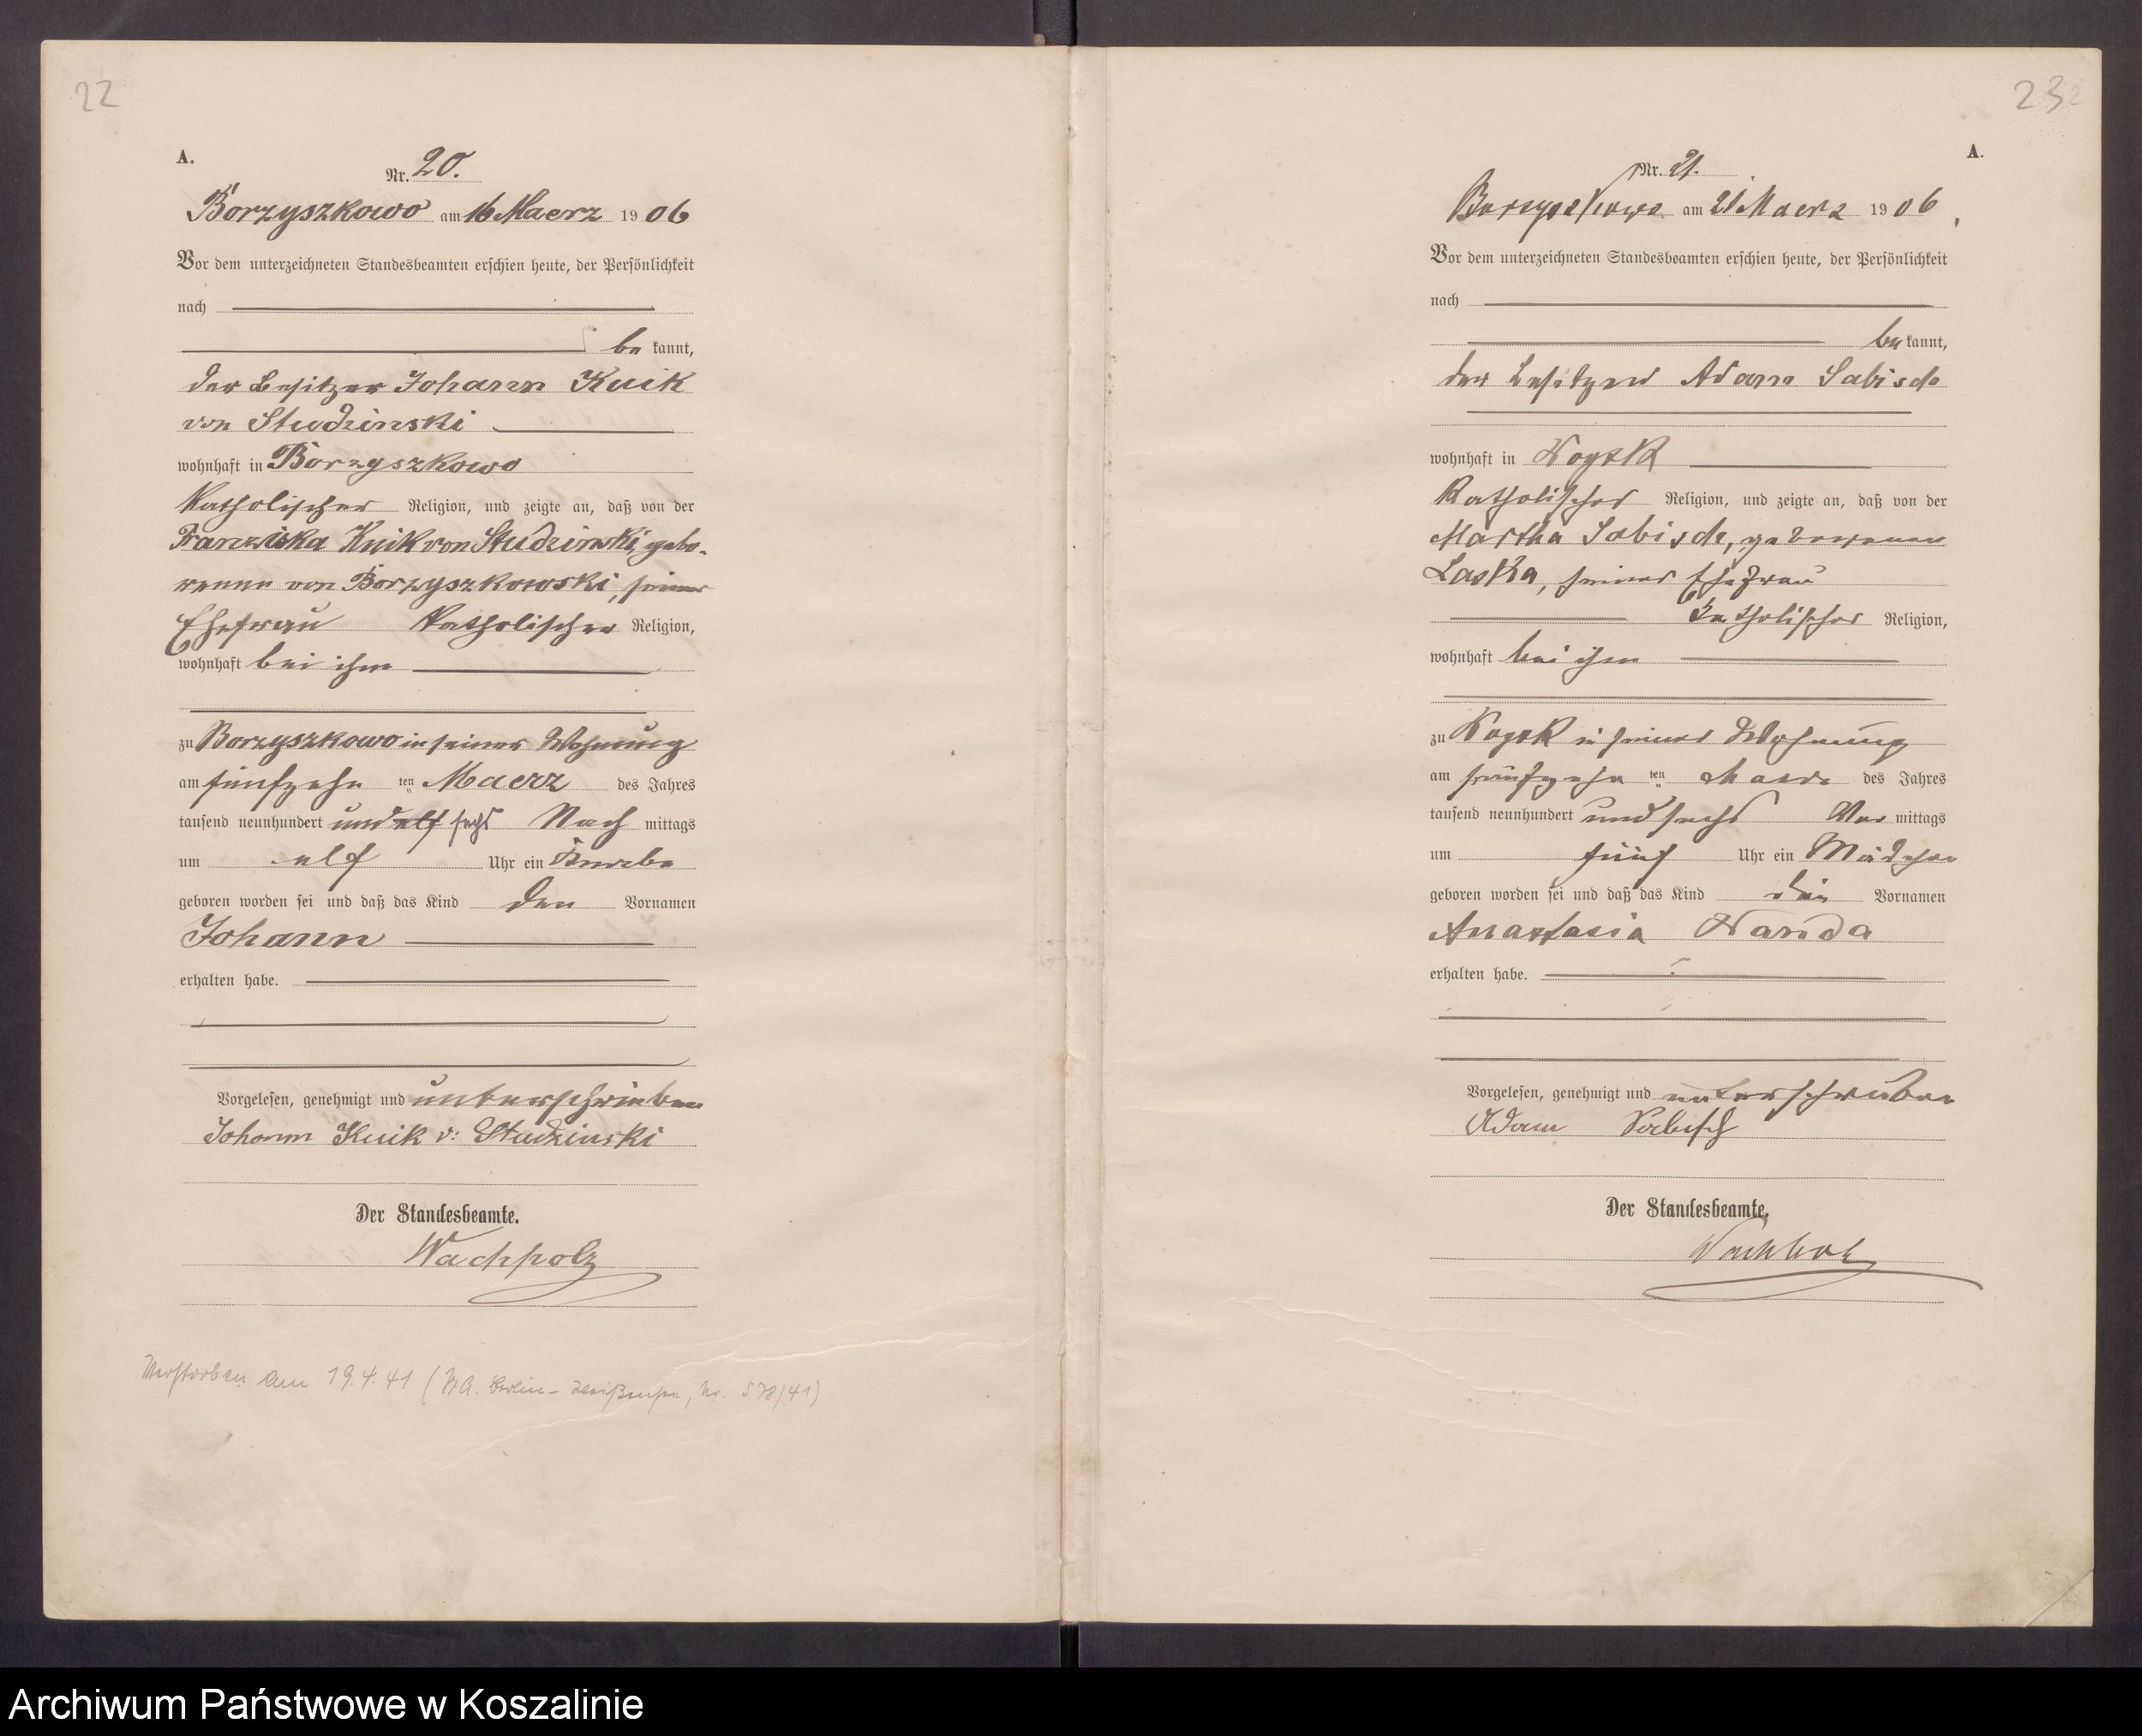 22
A.
Nr. 20.
Borzyszkowo am 16 Maerz 1906
Vor dem unterzeichneten Standesbeamten erschien heute, der Persönlichkeit
nach
be kannt,
der Besitzer Johann Kuik
von Studzinski
wohnhaft in Borzyszkowo
katholischer Religion, und zeigte an, daß von der
Franziska Kuik von Studzinski, gebo-
renen von Borzyszkowski, seiner
Ehefrau katholischer Religion,
wohnhaft bei ihm
zu Borzyszkowo in seiner Wohnung
am fünfzehn ten Maerz des Jahres
tausend neunhundert und elf sechs Nach mittags
um elf Uhr ein Knabe
geboren worden sei und daß das Kind den Vornamen
Johann
erhalten habe.
Vorgelesen, genehmigt und unterschrieben
Johann Kuik v: Studzinski
Der Standesbeamte.
Wachholz
Verstorben am 19.4.41 (StA. Berlin-Weißensee, Nr. 578/41)
23
A.
Nr. 21.
Borzyszkowo am 21 Maerz 1906
Vor dem unterzeichneten Standesbeamten erschien heute, der Persönlichkeit
nach
be kannt,
der Besitzer Adam Sabisch
wohnhaft in
katholischer Religion, und zeigte an, daß von der
Martha Sabisch, geborenen
Laska, seiner Ehefrau
katholischer Religion,
wohnhaft bei ihm
zu in seiner Wohnung
am fünfzehn ten Maerz des Jahres
tausend neunhundert und sechs Vor mittags
um fünf Uhr ein Mädchen
geboren worden sei und daß das Kind die Vornamen
Anastasia Wanda
erhalten habe.
Vorgelesen, genehmigt und unterschrieben
Adam Sabisch
Der Standesbeamte.
Wachholz
Archiwum Państwowe w Koszalinie